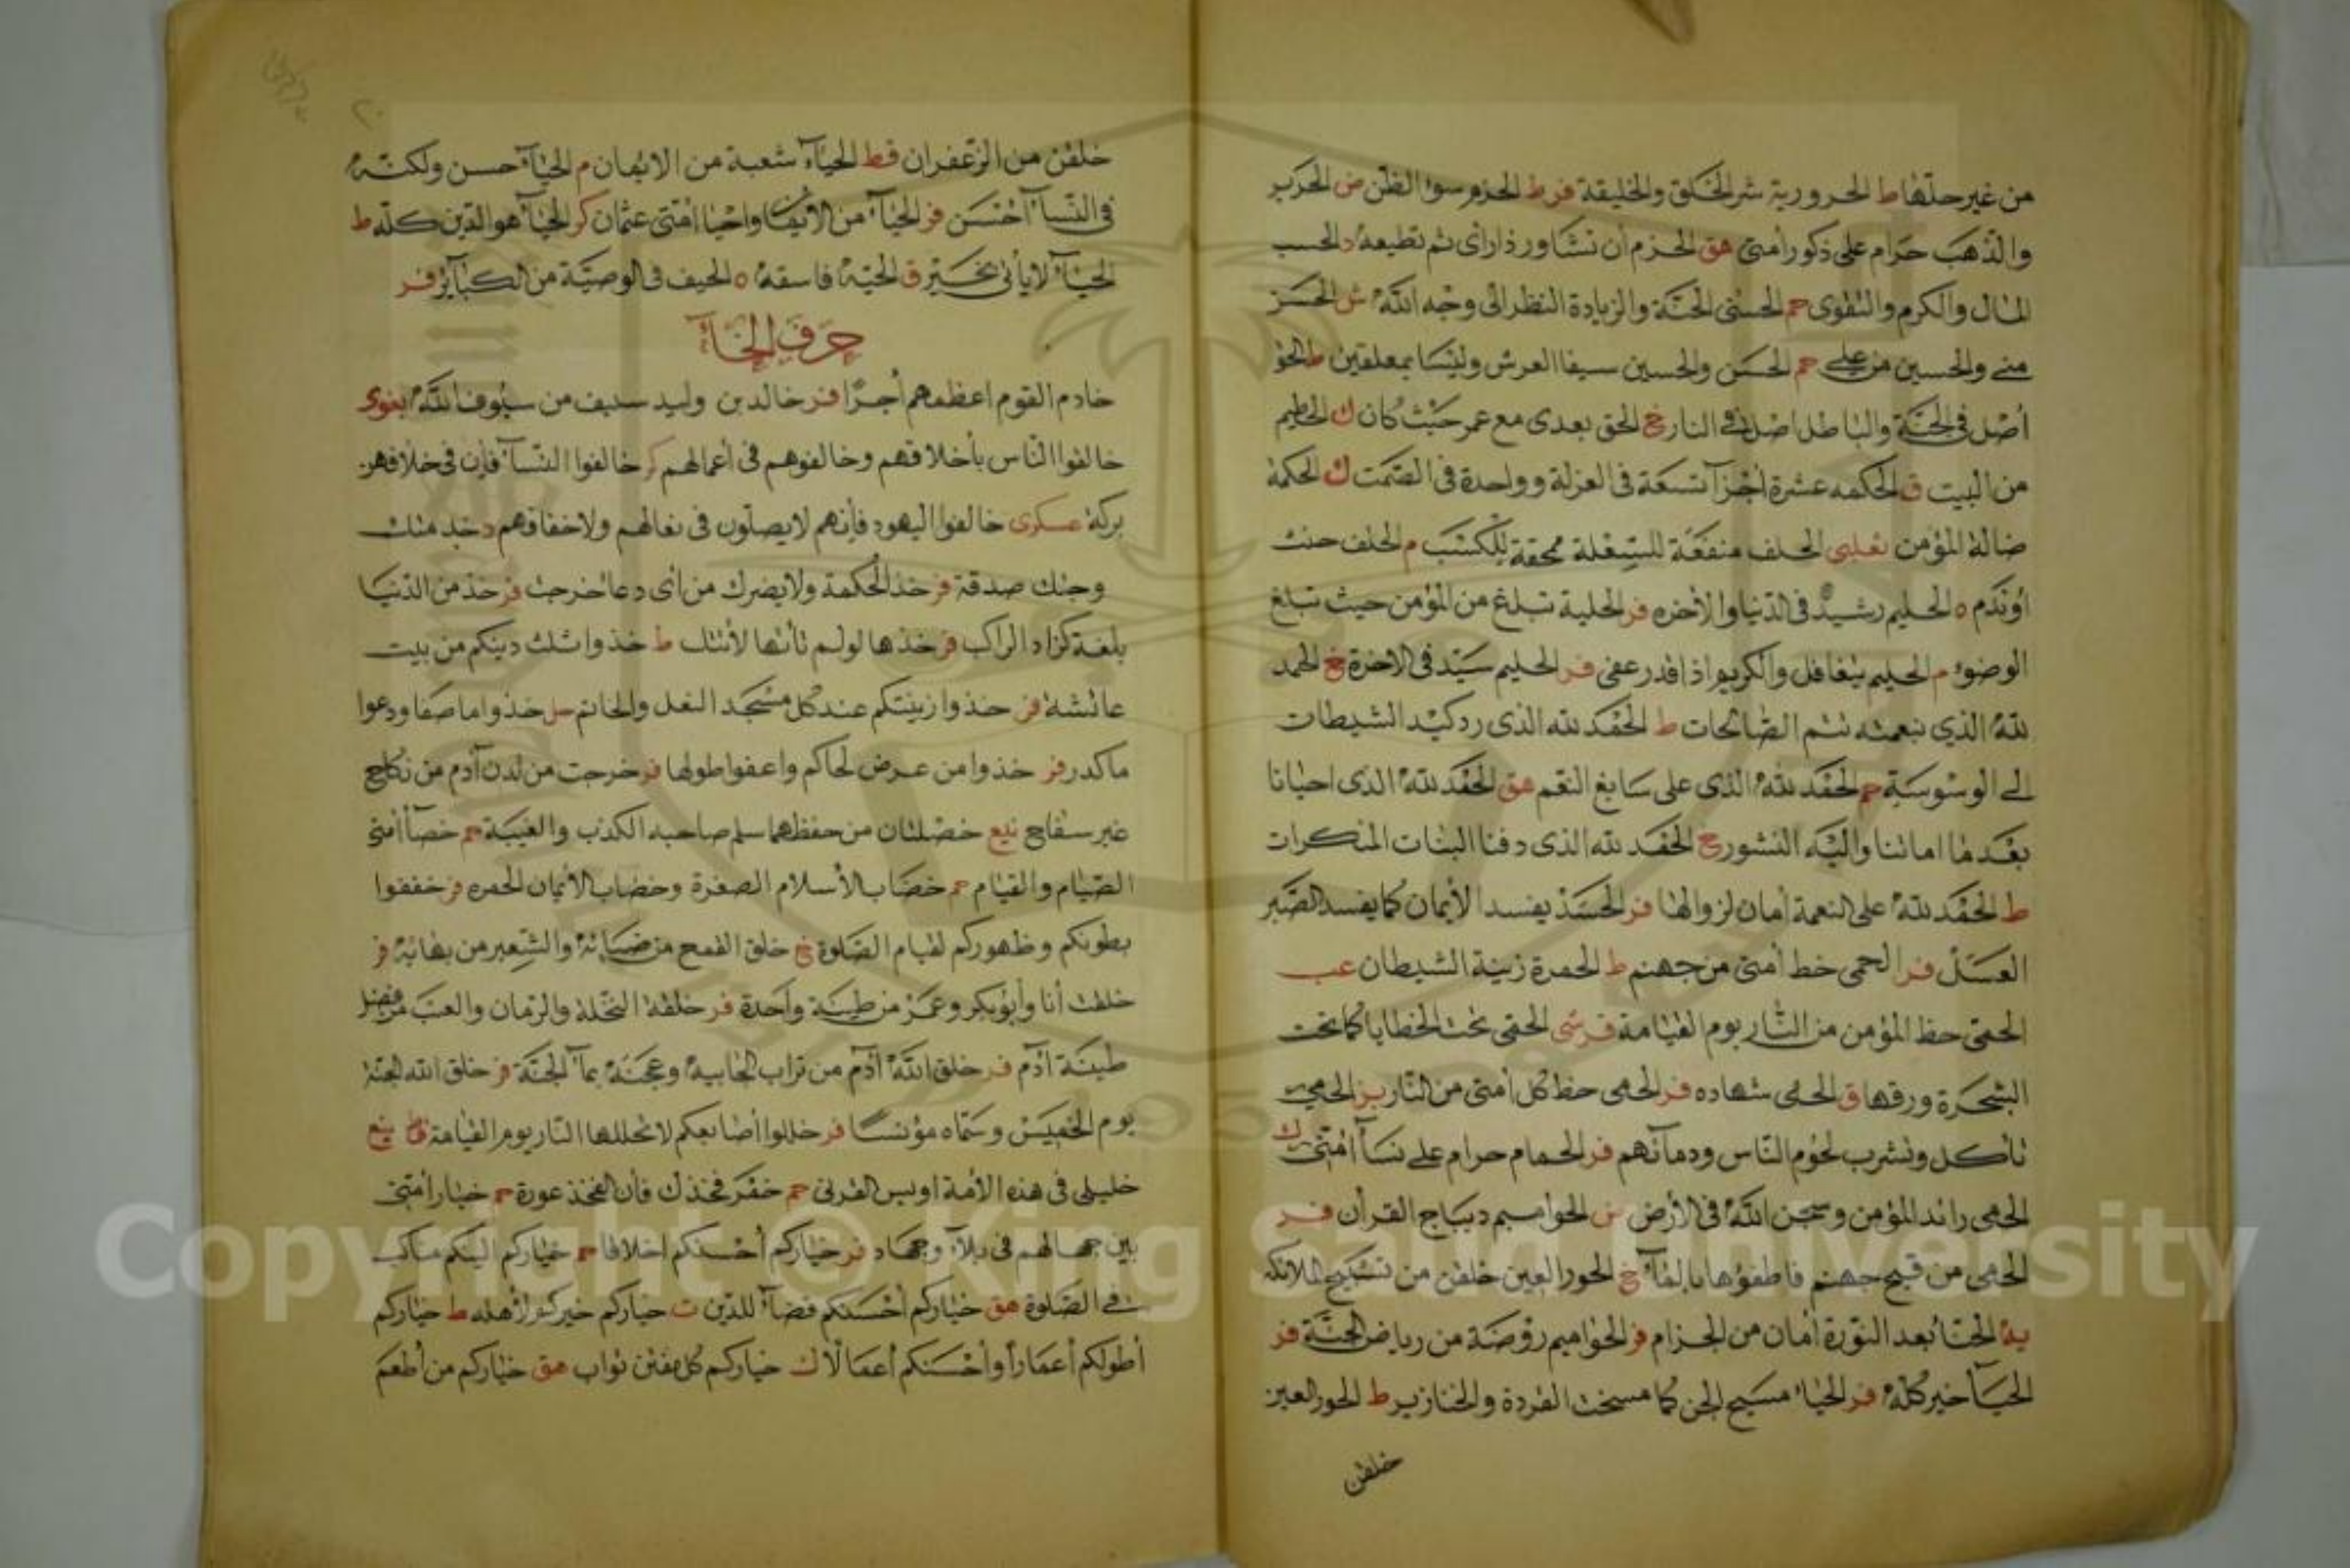 من غير حلتها ط الحرورية شر الخلق والخليقة فر ط الحزم سوا الظن ض الحرير
والذهب حرام على ذكور أمتى هق الحزم ان تشاور ذا رأى ثم تطيعه د الحسب
المال والكرم والتقوى حم الحسنى الجنة والزيادة النظر الى وجه الله ش الحسن
منے والحسين من علے حم الحسن والحسين سيفا العرش وليسا بمعلقين ط الحق
أصل في الجنة والباطل أصل فے النار خ الحق بعدى مع عمر حيث كان ك الحطيم
من البيت ق الحكمه عشرة أجزآ تسعة فى العزلة وواحدة فى الصمت ك الحكمة
ضالة المؤمن تعلبى الحلف منفقة للسعلة ممحقة للكسب م الحلف حنث
أوندم ه الحليم رشيد فى الدنيا والأخره فر الحلية تبلغ من المؤمن حيث تبلغ
الوضوء م الحليم يتغافل والكريم اذا قدر عفى فر الحليم سيد فى الاخرة خ الحمد
لله الذي بنعمته تتم الصالحات ط الحمد لله الذى رد كيد الشيطان
الے الوسوسة حم الحمد لله الذى على سابغ النعم هق الحمد لله الذى احيانا
بعد ما اماتنا واليه النشور خ الحمد لله الذى دفنا البنات المنكرات
ط الحمد لله على النعمة أمان لزوالها فر الحسد يفسد الأيمان كما يفسد الصبر
العسل فر الحمى خط أمتى من جهنم ط الحمرة زينة الشيطان عب
الحمى حظ المؤمن من النار يوم القيامة فر شى الحمى تحت الخطايا كما تحت
الشجرة ورقها ق الحمى شهاده فر الحمى حظ كل أمتى من النار بز الحمى
تأكل وتشرب لحوم الناس ودمآئهم فر الحمام حرام على نسآ امتى ك
الحمى رائد المؤمن وسجن الله فى الأرض س الحواميم ديباج القرأن فر
الحمى من قيح جهنم فاطفؤها بالمآء خ الحور العين خلقن من تسبيح الملائكه
يه الحنا بعد النورة أمان من الجزام فر الحواميم روضة من رياض الجنة فر
الحيآ خير كله فر الحيا مسيح الجن كما مسخت القردة والخنازير ط الحور العين
خلقن
٢٠
خلقن من الزعفران قط الحيآء شعبة من الايمان م الحيآء حسن ولكنه
فى النسآء احسن فر الحيآء من الأيمان واحيا امتى عثمان كر الحيآء هو الدين كله ط
الحيآء لا يأتى بخير ق الحية فاسقة ه الحيف فى الوصية من الكبآئر فر
حرف الخآء
خادم القوم اعظمهم أجرًا فر خالد بن وليد سيف من سيوف الله بغوى
خالفوا الناس بأخلاقهم وخالفوهم فى أعمالهم كر خالفوا النسآء فإن فى خلافهن
بركة عسكرى خالفوا اليهود فإنهم لا يصلون فى نعالهم ولا خفافهم د خدمتك
وجتك صدقة فر خذ الحكمة ولا يضرك من أى دعا خرجت فر خذ من الدنيا
بلغة كزاد الراكب فر خذها لو لم تأتها لأتتك ط خذوا ثلث دينكم من بيت
عائشة فر خذوا زينتكم عند كل مسجد النعل والخاتم حل خذوا ما صفا ودعوا
ما كدر فر خذوا من عرض لحاكم واعفوا طولها فر خرجت من لدن آدم من نكاح
غير سفاح نيع خصلتان من حفظهما سلم صاحبه الكذب والغيبة حم خصآ أمتى
الصيام والقيام حم خضاب الأسلام الصفرة وخضاب الأيمان الحمره فر خففوا
بطونكم وظهوركم لقيام الصلوة خ خلق القمح من ضبائه والشعير من بهائه فر
خلقت أنا وأبوبكر وعمر من طينة واحدة فر خلقة النخلة والرمان والعنب من فضل
طينة آدم فر خلق الله آدم من تراب الجابيه وعجنه بمآء الجنة فر خلق الله الجنة
يوم الخميس وسماه مؤنسا فر خللوا أصابعكم لا تخللها النار يوم القيامة قط نيع
خليلى فى هذه الأمة اويس القرنى حم خمر فخذك فأن الفخذ عورة حم خيار أمتى
بين جهالهم فى بلآء وجهاد فر خياركم أحسنكم اخلاقا حم خياركم اليكم مناكب
فے الصلوة هق خياركم أحسنكم قضآء للدين ت خياركم خيركم لأهله ط خياركم
أطولكم أعماراً وأحسنكم أعمالًا ك خياركم كل مفتن تواب هق خياركم من أطعم
Copyright © King Saud University